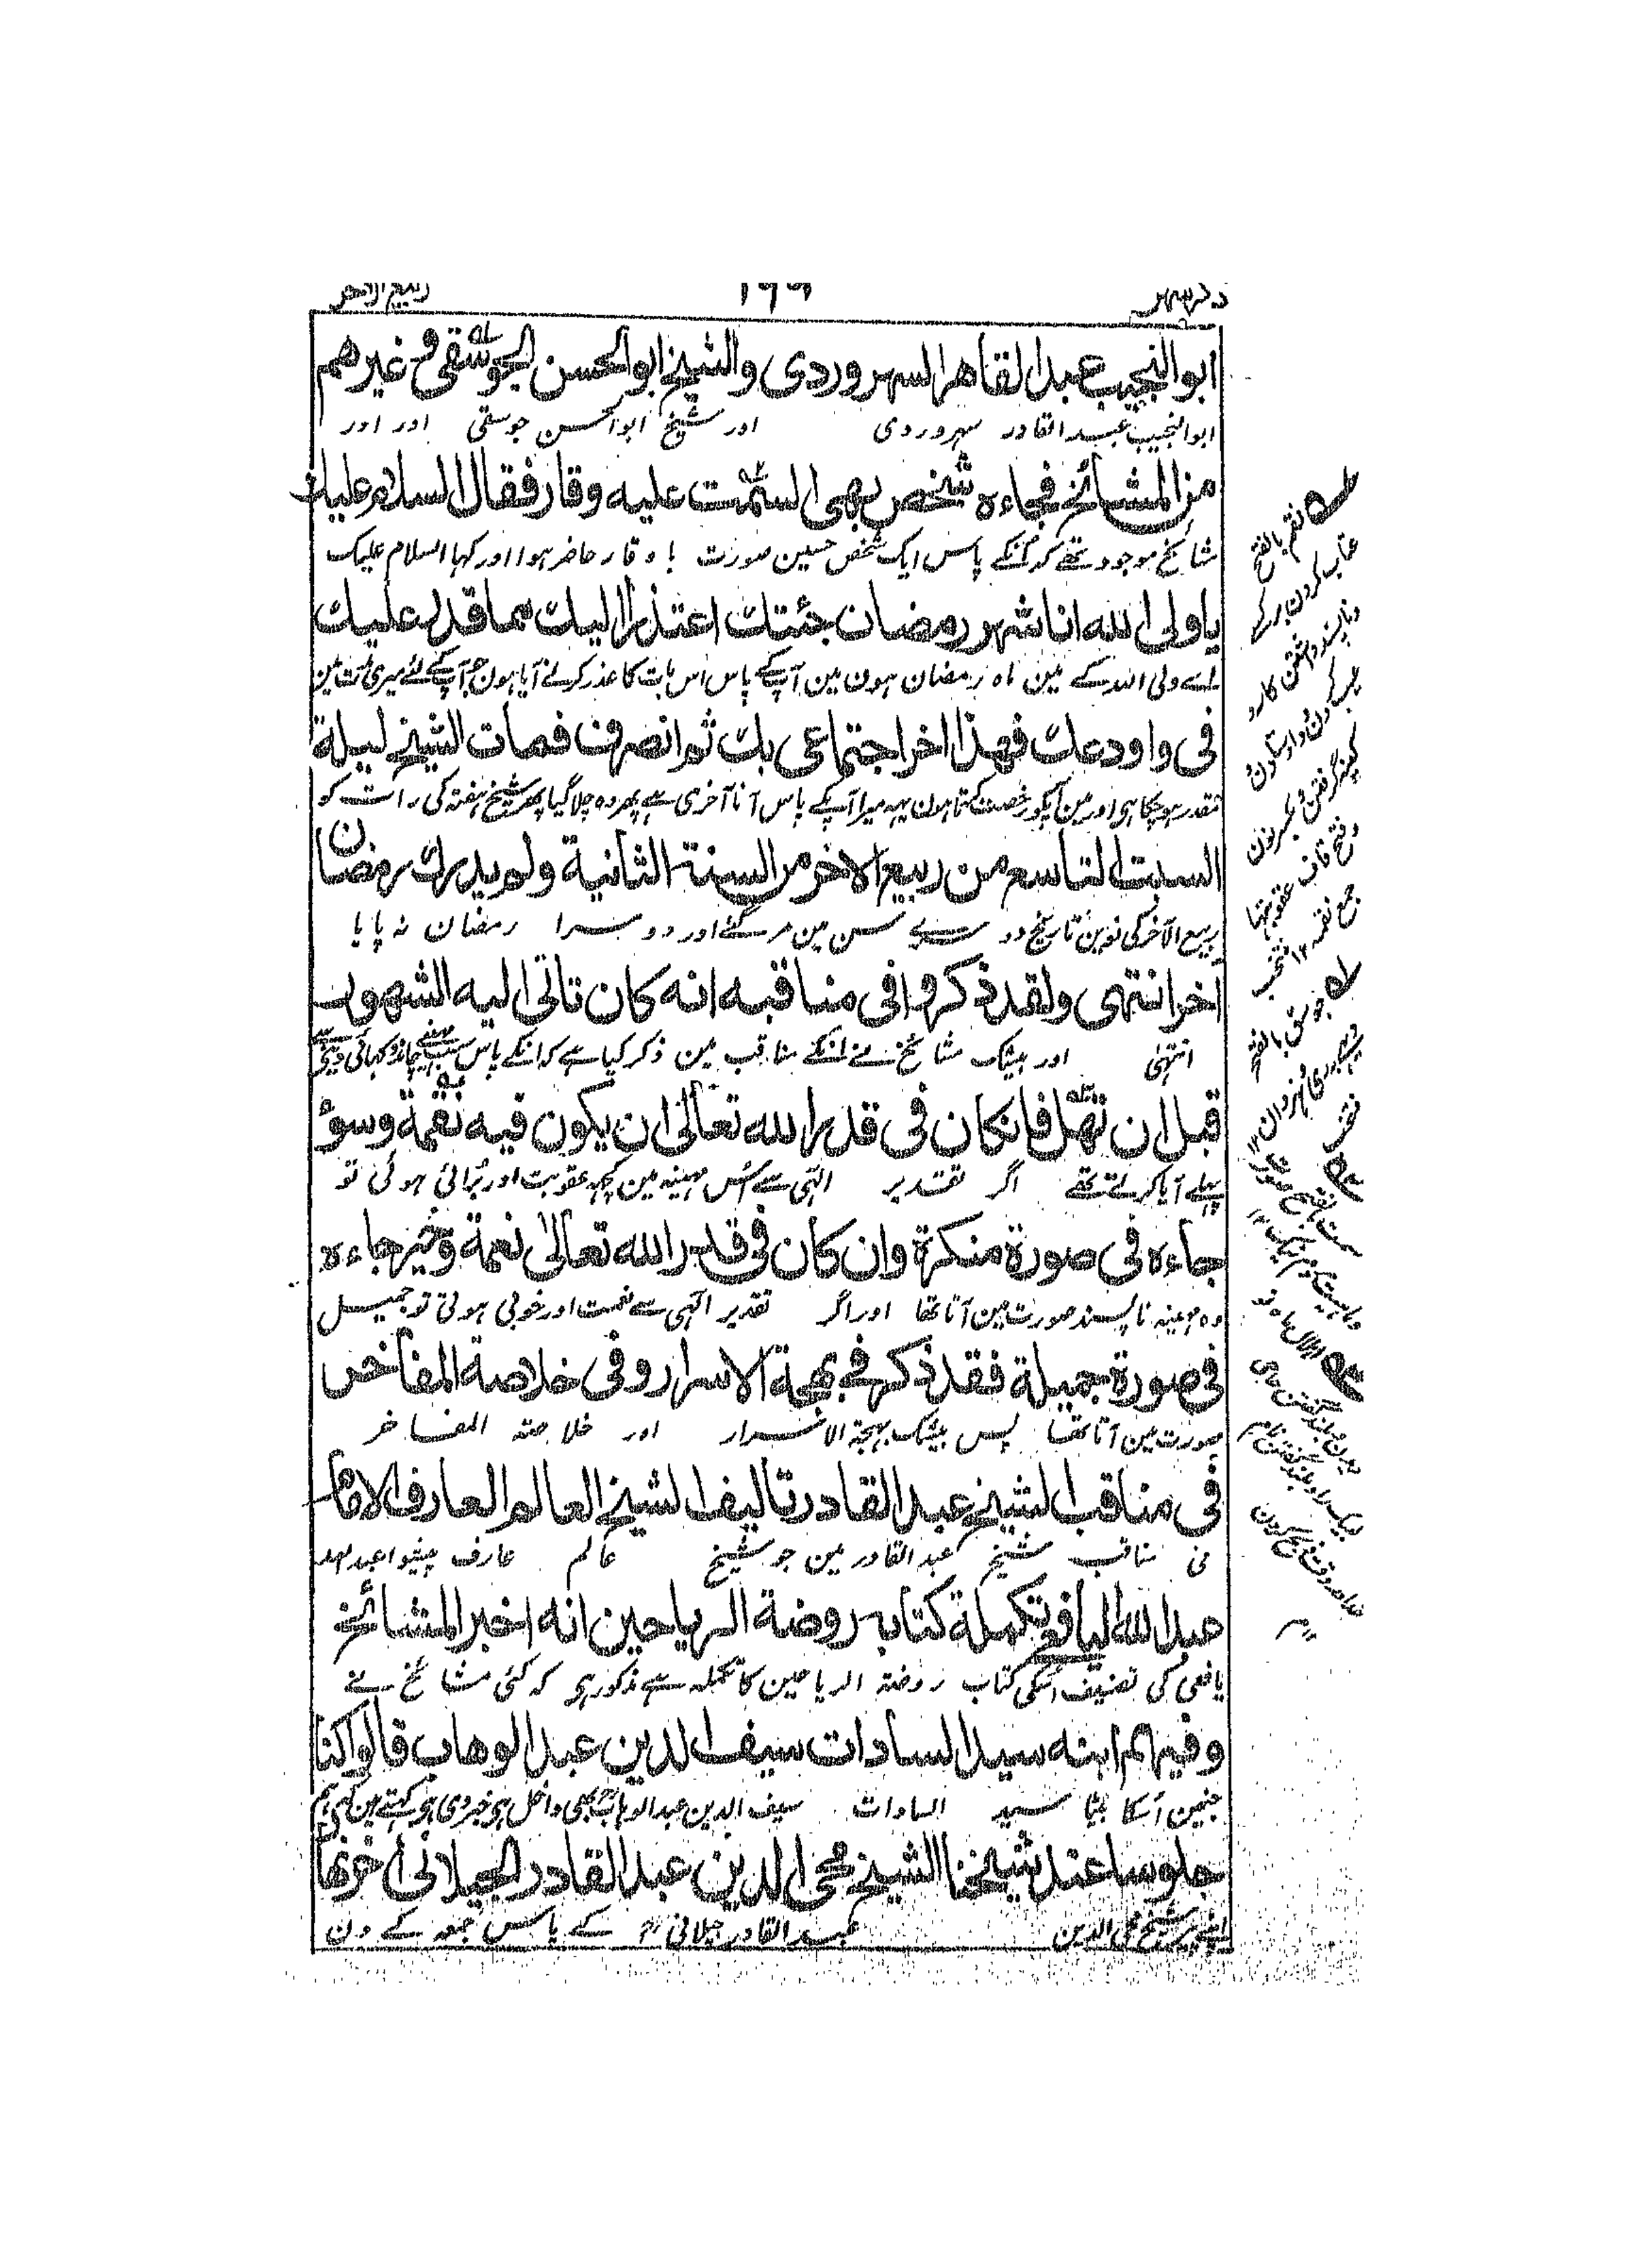 ذکر شهر ۱۶۹ ربیع الآخر
ابو النجیب عبد القاهر السهروردی والشیخ ابو الحسن الجوسقی وغیرهم
ابو النجیب عبد القادر سهروردی اور شیخ ابو الحسن جوسقی اور اور
من المشائخ فجاءه شخص بهی السمت علیه وقار فقال السلام علیك
مشائخ موجود تھے کہ انکے پاس ایک شخص حسین صورت با وقار حاضر ہوا اور کہا السلام علیک
یا ولی الله انا شهر رمضان جئتك اعتذر الیك مما قدر علیك
اے ولی اللہ کے مین ماہ رمضان ہون مین آپ کے پاس اس بات کا عذر کرنے آیا ہون جو آپ کے لئے میری مین
فی واودعك فهذا اخر اجتماعی بك ثم انصرف فمات الشیخ لیلة
مقدر ہو چکا ہی اور مین آپکو رخصت کرتا ہون یہ میرا آپ کے پاس آنا آخری ہے پھر وہ چلا گیا پھر شیخ ہفتہ کی رات کو
السبت التاسع من ربیع الاخر من السنة الثانیة ولم یدرك رمضان
ربیع الآخر کی نوین تاریخ دوسرے سن مین مر گئے اور دوسرا رمضان نہ پایا
اخر انتهی ولقد ذکروا فی مناقبه انه کان تاتی الیه الشهور
انتہی اور بیشک مشائخ نے انکے مناقب مین ذکر کیا ہے کہ انکے پاس سب مہینے چاند دکھائی دینے سے
قبل ان تهل فان کان فی قدر الله تعالی ان یکون فیه نقمة وسوء
پہلے آیا کرتے تھے اگر تقدیر الٰہی سے اس مہینہ مین کچھ عقوبت اور برائی ہوئی تو
جاءه فی صورة منکرة وان کان فی قدر الله تعالی نعمة وخیر جاءه
وہ مہینہ ناپسند صورت مین آتا تھا اور اگر تقدیر الٰہی سے نعمت اور خوبی ہوتی تو جمیل
فی صورة جمیلة فقد ذکر فی بهجة الاسرار وفی خلاصة المفاخر
صورت مین آتا تھا پس بیشک بہجۃ الاسرار اور خلاصۃ المفاخر
فی مناقب الشیخ عبد القادر تالیف الشیخ العالم العارف الامام
فی مناقب شیخ عبد القادر مین جو شیخ عالم عارف پیشوا عبد اللہ
عبد الله الیافعی تکملة کتابه روضة الریاحین انه اخبر المشائخ
یافعی کی تصنیف انکی کتاب روضۃ الریاحین کا تکملہ ہے مذکور ہی کہ کئی مشائخ نے
وفیهم ابنه سید السادات سیف الدین عبد الوهاب قالوا کنا
جنمین اسکا بیٹا سید السادات سیف الدین عبد الوہاب بھی داخل ہی خبر دی ہی کہتے ہین کہ ہم
جلوسا عند شیخنا الشیخ محی الدین عبد القادر الجیلانی اخر نهار
اپنے پیر شیخ محی الدین عبد القادر جیلانی کے پاس جمعہ کے دن
نقم بالفتح
عتاب کردن بر کسے
عیب
کینہ گرفتن بکسر نون
وفتح قاف عقوبتها
جمع نقمه ۱۲ منتخب
جوسق بالفتح
منتخب